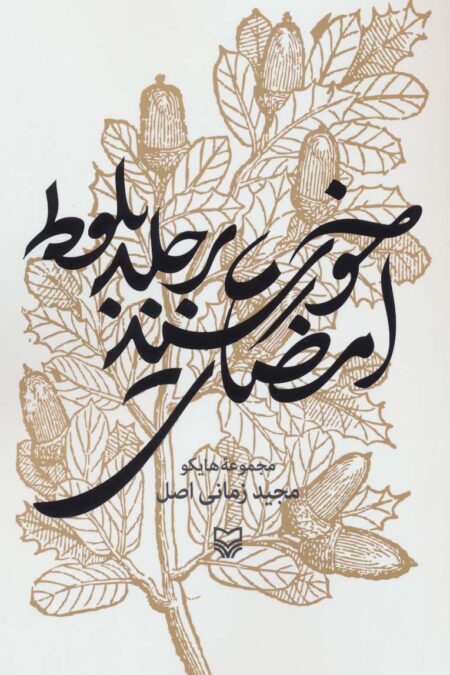 امضای خورشید بر جلد بلوط
مجموعهٔ هایکو
مجید زمانی اصل